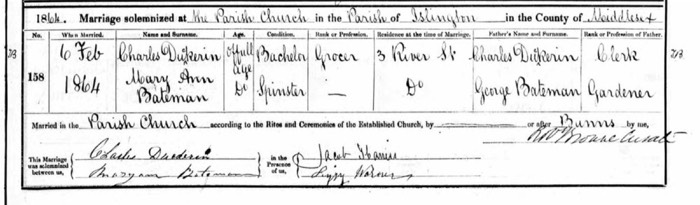 1864. Marriage solemnized at the Parish Church in the Parish of Islington in the County of Middlesex
No. When Married. Name and Surname. Age. Condition. Rank or Profession. Residence at the time of Marriage. Father's Name and Surname. Rank or Profession of Father.
158 6 Feb 1864 Charles Duckerin of full age Bachelor Grocer 3 River St Charles Duckerin Clerk
Mary Ann Bateman Do Spinster — Do George Bateman Gardener
Married in the Parish Church according to the Rites and Ceremonies of the Established Church, by or after Banns by me,
Curate
This Marriage was solemnized between us, Charles Duckerin Maryann Bateman in the Presence of us, Jacob Lizzy